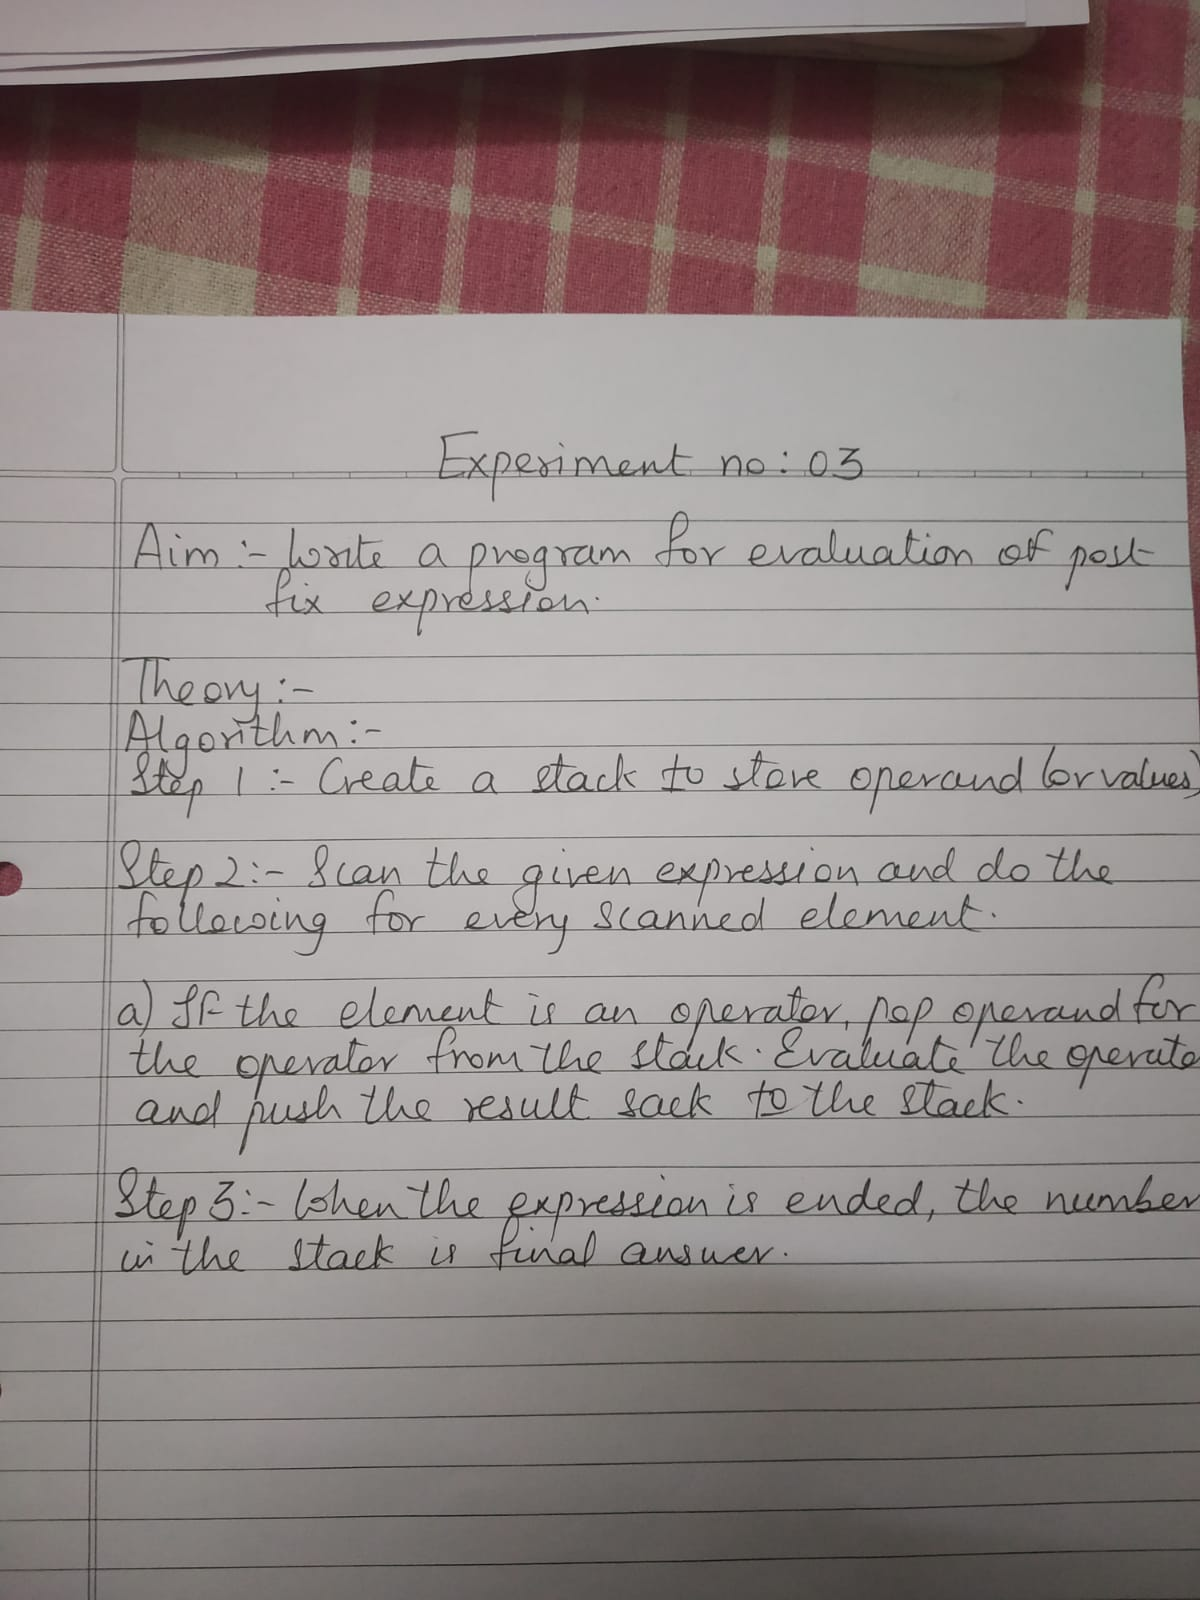 Experiment no: 03
Aim :- Write a program for evaluation of post
fix expression.
Theory :-
Algorithm :-
Step 1 :- Create a stack to store operand (or values)
Step 2 :- Scan the given expression and do the
following for every scanned element.
a) If the element is an operator, pop operand for
the operator from the stack. Evaluate the operato
and push the result sack to the stack.
Step 3 :- When the expression is ended, the number
in the stack is final answer.